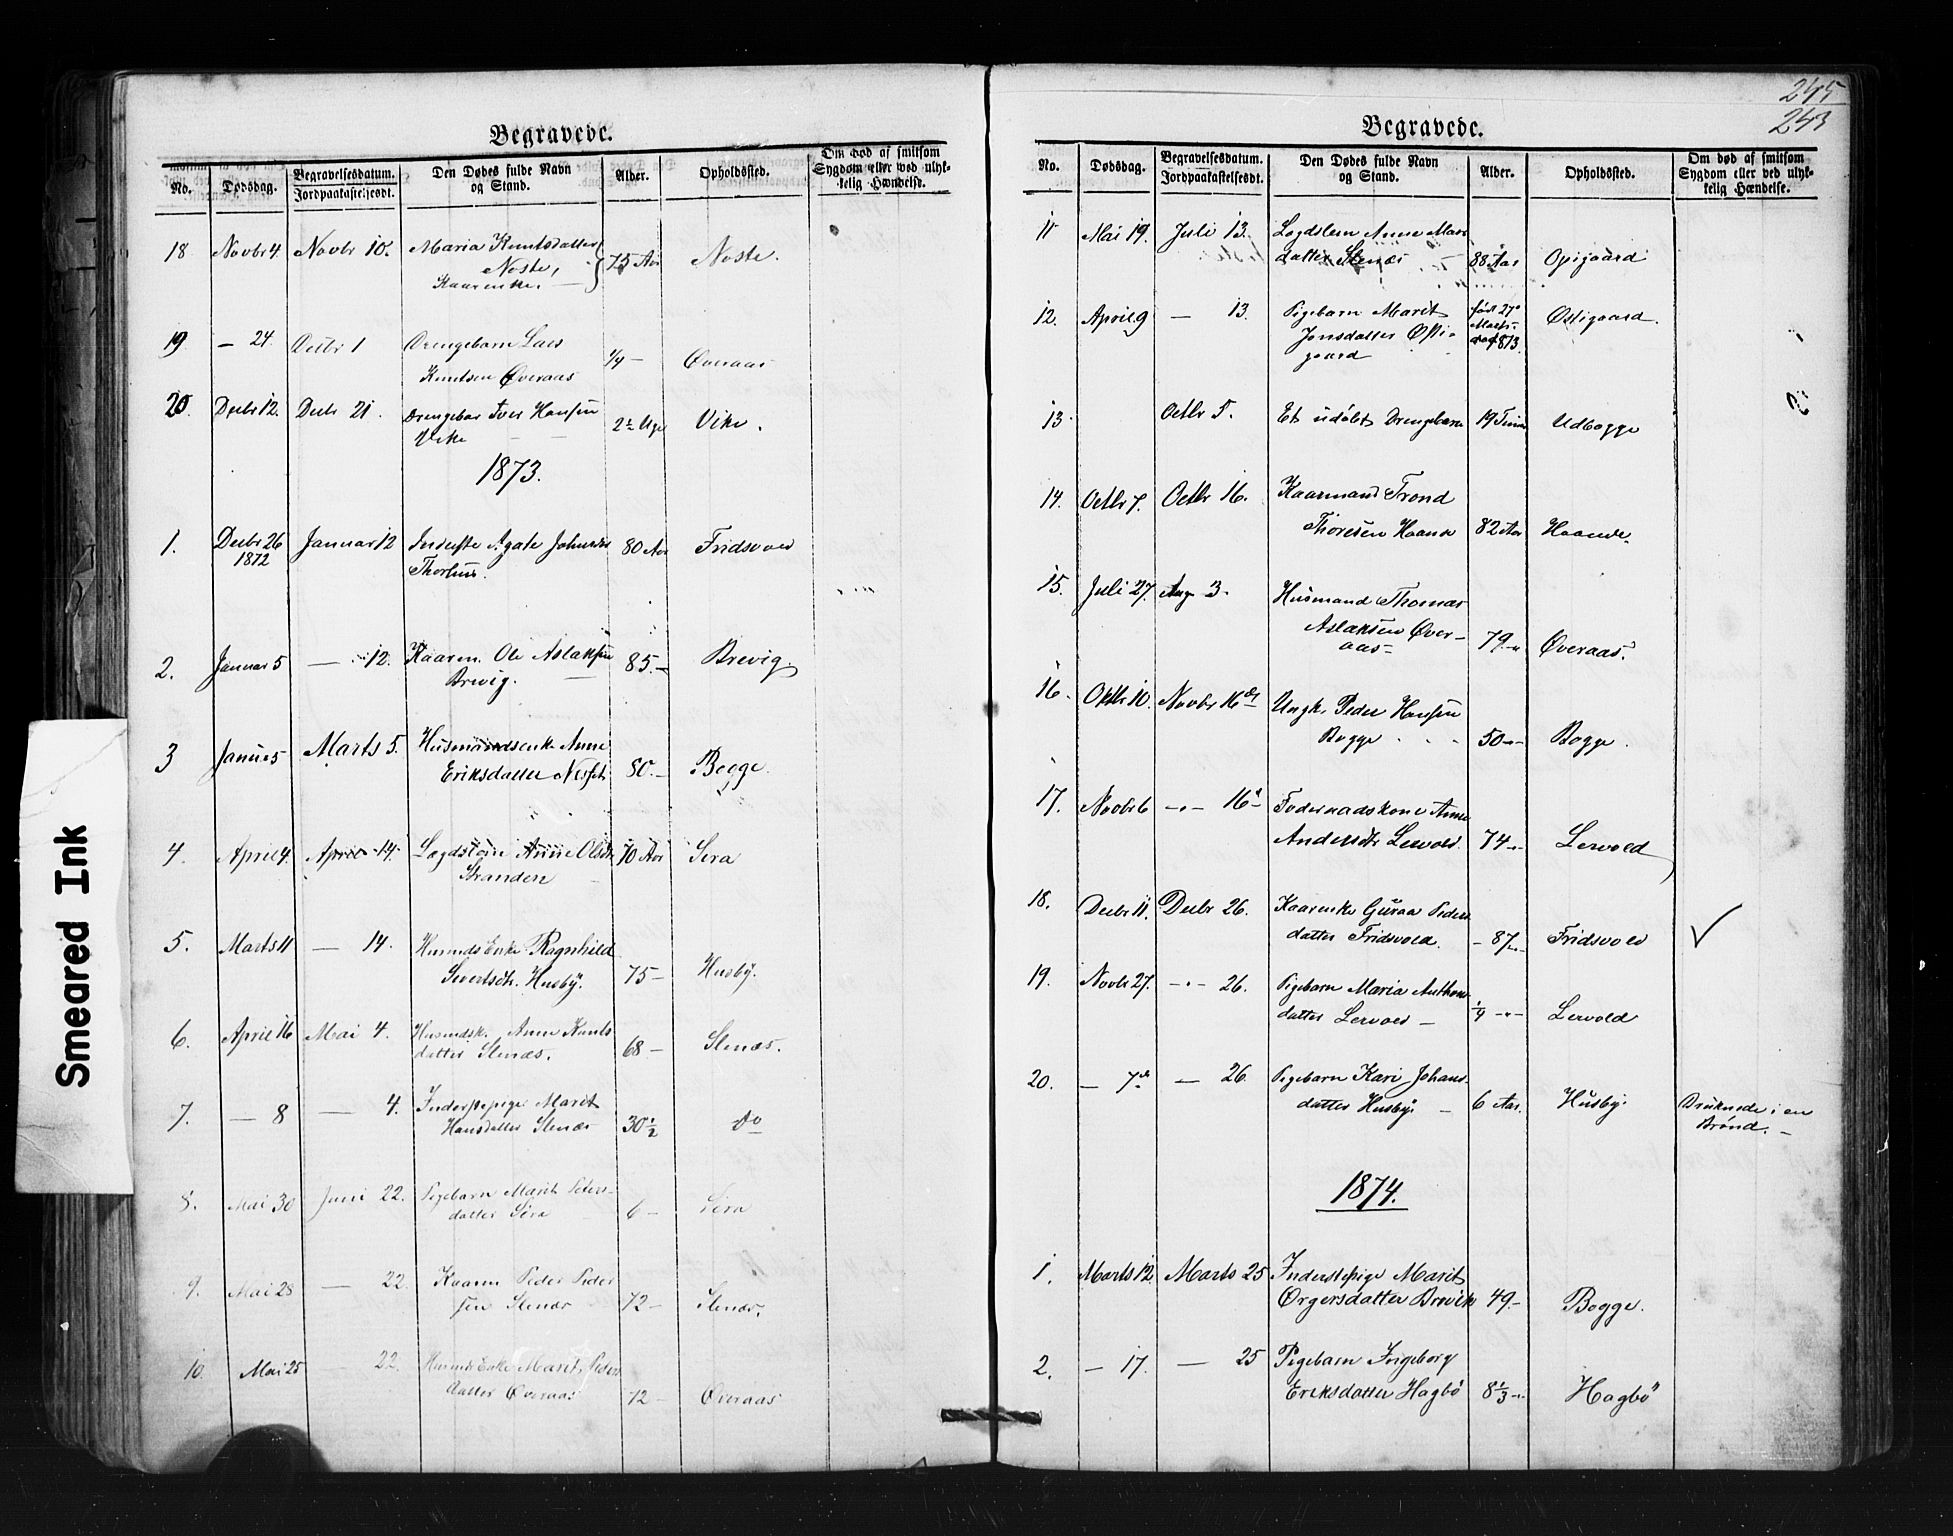 Smeared Ink
Begravede.
No.
Dødsdag.
Begravelsesdatum.
Jordpaakastelsesdt.
Den Dødes fulde Navn
og Stand.
Alder.
Opholdssted.
Om død af smitsom
Sygdom eller ved ulyk-
kelig Hændelse.
18 Novbr 4. Novbr 10. Maria Knutsdatter
Noste, 75 Aar Noste.
Kaarenke.
19 — 24. Decbr 1 Drengebarn Lars
Knutsen Øveraas 1/4 — Øveraas
20 Decbr 12. Decbr 21. Drengebar Iver Hansen
Vike 2½ Uge Vike.
1873.
1. Decbr 26 Januar 12 Inderste Agate
1872 80 Aar Fridsvold
2. Januar 5 — 12. Kaarm. Ole Aslaksen
Brevig. 85. — Brevig.
3 Januar 5 Marts 5. Husmandsenke Anne
Eriksdatter 80. — Bogge.
4. April 4. April 14. Lægdslem Anne Olsdtr
Stranden 70 Aar Sira
5. Marts 11 — 14. Husmds Enke Ragnhild
Sivertsdtr. Husby. 75 — Husby.
6. April 16 Mai 4. Husmdsk. Anne Knuts
datter Stenæs. 68 — Stenæs.
7. — 8 — 4. Inderstepige Marit
Hansdatter Stenæs 30½ do
8. Mai 30 Juni 22. Pigebarn Marit Peders-
datter Sira 6 — Sira
9. Mai 28 — 22. Kaarm Peder Peder
sen Stenæs 72 — Stenæs.
10. Mai 25 — 22. Husmds Enke Marit Peders
datter Øveraas 72 — Øveraas
245
243
Begravede.
No.
Dødsdag.
Begravelsesdatum.
Jordpaakastelsesdt.
Den Dødes fulde Navn
og Stand.
Alder.
Opholdssted.
Om død af smitsom
Sygdom eller ved ulyk-
kelig Hændelse.
11 Mai 19. Juli 13. Lægdslem Anne
datter Stenæs 88 Aar Opigaard
12. April 9 — 13. Pigebarn Marit født 27de
Jonsdatter Østi- Marts Østigaard.
gaard 1873.
13 Octbr 5. Et udøbt Drengebarn 19 Timer Udbogge
14. Octbr 7. Octbr 16. Kaarmand Trond
Thoresen Haande 82 Aar Haande.
15. Juli 27. Aug 3. Husmand Thomas
Aslaksen Øver-
aas 79 — Øveraas.
16. Oktbr 10. Novbr 16de Ungk. Peder Hansen
Bogge 50 — Bogge.
17. Novbr 6 — 16 Foderaadskone Anne
Andersdtr Lervold 74 — Lervold
18. Decbr 11. Decbr 26. Kaarenke Guroa Peders
datter Fridsvold. — 87 — Fridsvold
19. Novbr 27. — 26. Pigebarn Maria Anthons
datter Lervold — 1/4 — Lervold
20. — 7de — 26. Pigebarn Kari Johans-
datter Husby. 6 Aar. Husby. Druknede i en
Brønd. —
1874.
1. Marts 12. Marts 25 Inderstepige Marit
Ørgersdatter Brevik 49 — Bogge.
2. — 17. — 25 Pigebarn Ingeborg
Eriksdatter Hagbø 8⅓ — Hagbø